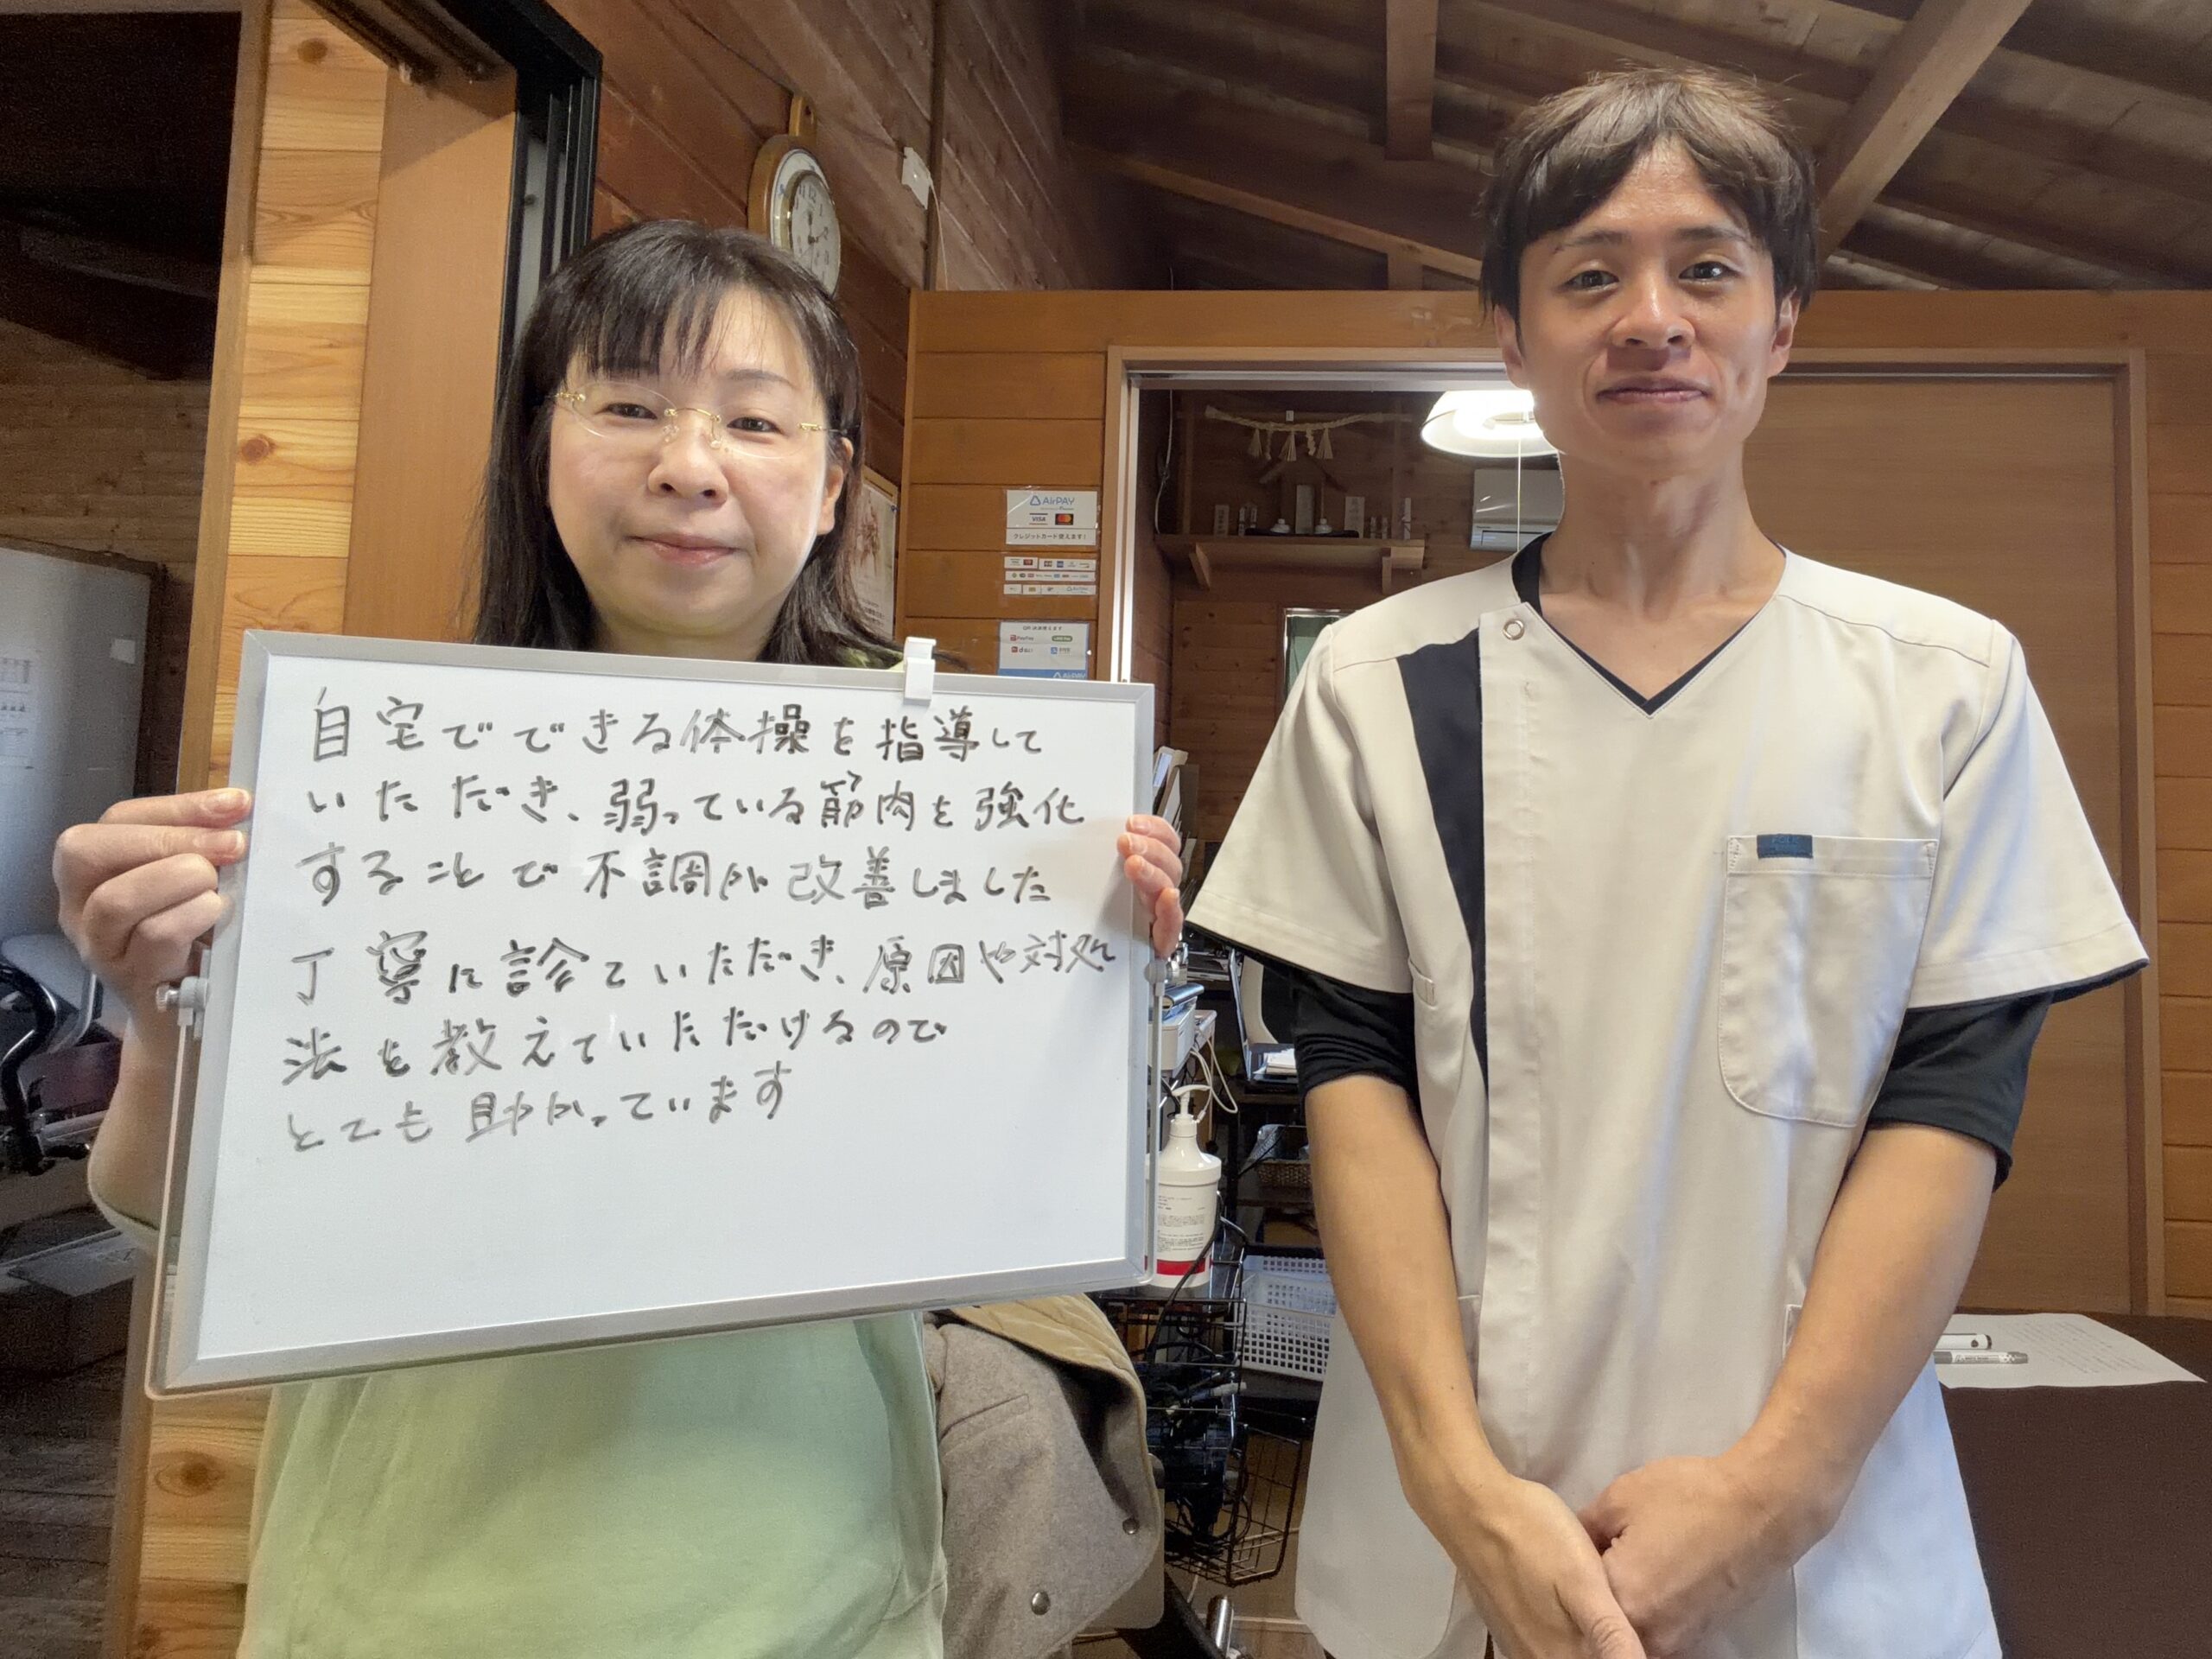 自宅でできる体操を指導して
いただき、弱っている筋肉を強化
することで不調が改善しました
丁寧に診ていただき、原因や対処
法を教えていただけるので
とても助かっています
AirPAY
VISA
クレジットカード使えます!
PayPay
d払い
AirPAY